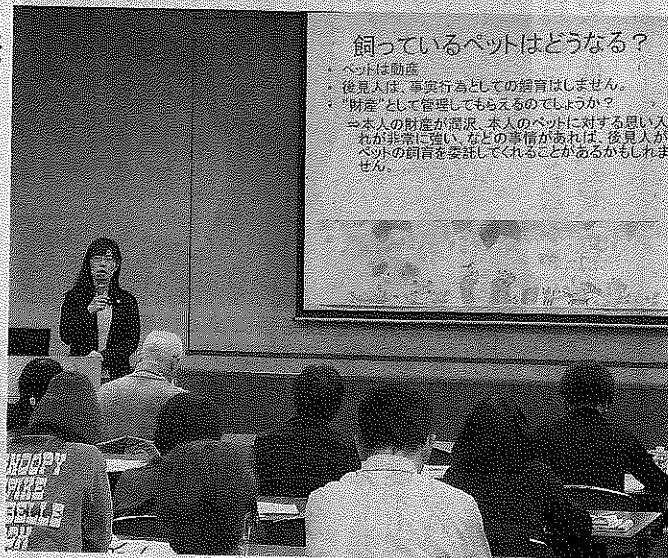 飼っているペットはどうなる？
・ペットは動産
・後見人は、事実行為としての飼育はしません。
・"財産"として管理してもらえるのでしょうか？
⇒本人の財産が潤沢、本人のペットに対する思い入
れが非常に強い、などの事情があれば、後見人が
ペットの飼育を委託してくれることがあるかもしれま
せん。
SNOOPY
SPIKE
BELLE